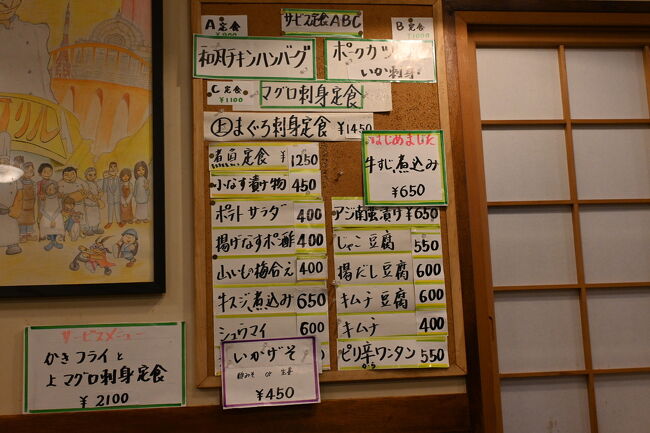 サービス定食ABC
A定食
¥900
B定食
¥1000
和風チキンハンバーグ
ポークカツ
いか刺身
C定食
¥1100
マグロ刺身定食
上まぐろ刺身定食 ¥1450
煮魚定食 ¥1250
小なす漬け物 450
ポテトサラダ 400
揚げなすポン酢 400
山いも梅合え 400
牛スジ煮込み 650
シュウマイ 600
はじめました
牛すじ煮込み
¥650
アジ南蛮漬け ¥650
しゃこ豆腐 550
揚だし豆腐 600
キムチ豆腐 600
キムチ 400
ピリ辛ワンタン 550
いかゲソ
¥450
サービスメニュー
かきフライと
上マグロ刺身定食
¥2100